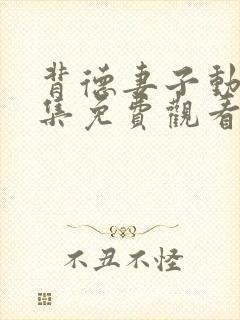 背德妻子動
集免費觀看
不丑不怪